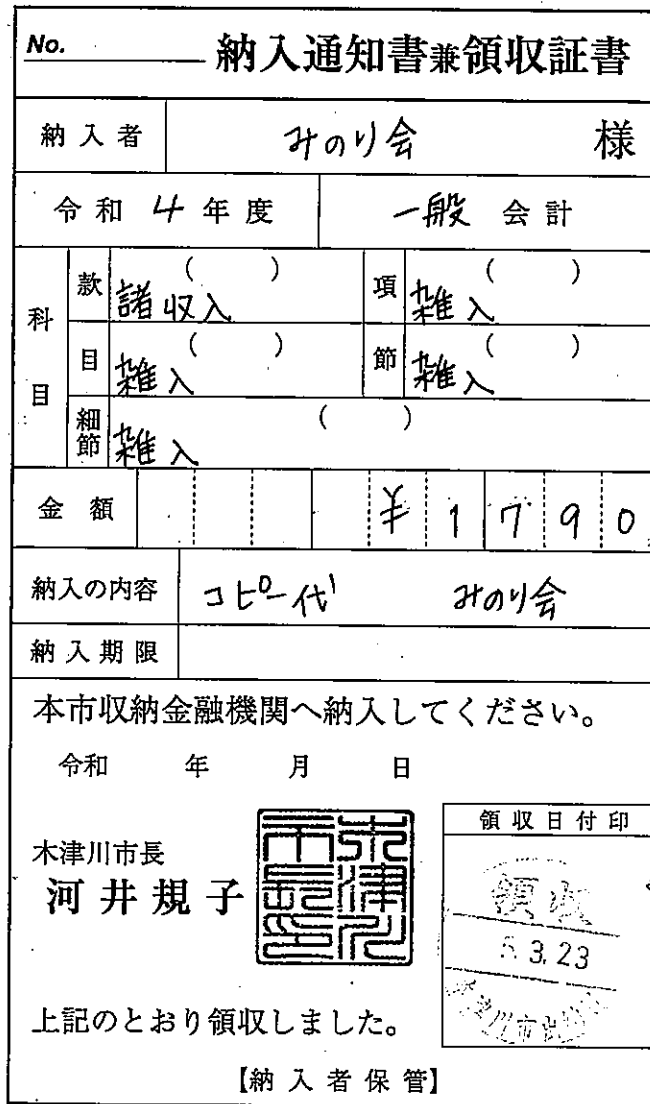 No. 納入通知書兼領収証書
納入者 みのり会 様
令和 4 年度 一般 会計
科目 款 ( ) 諸収入 項 ( ) 雑入
目 ( ) 雑入 節 ( ) 雑入
細節 ( ) 雑入
金額 ¥1790
納入の内容 コピー代 みのり会
納入期限
本市収納金融機関へ納入してください。
令和 年 月 日
木津川市長
河井規子
木津川市長之印
領収日付印
領収
5.3.23
上記のとおり領収しました。
【納入者保管】